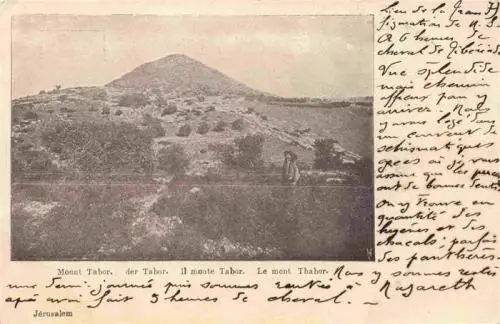 Lieu de la Trans
figuration de N. S.
A 6 heures de
cheval de Tibériade
Vue splendide
mais chemin
affreux pour y
arriver. Nous
y avons logé dans
un couvent de
schismatiques
grecs où je vous
assure que les puces
ont de bonnes dents
On y trouve en
quantité des
hyènes et des
chacals, parfois
des panthères.
Mount Tabor. der Tabor. Il monte Tabor. Le mont Thabor.
Nous y sommes restés
une demi journée puis sommes rentrés à Nazareth
après avoir fait 3 heures de cheval.
Jérusalem